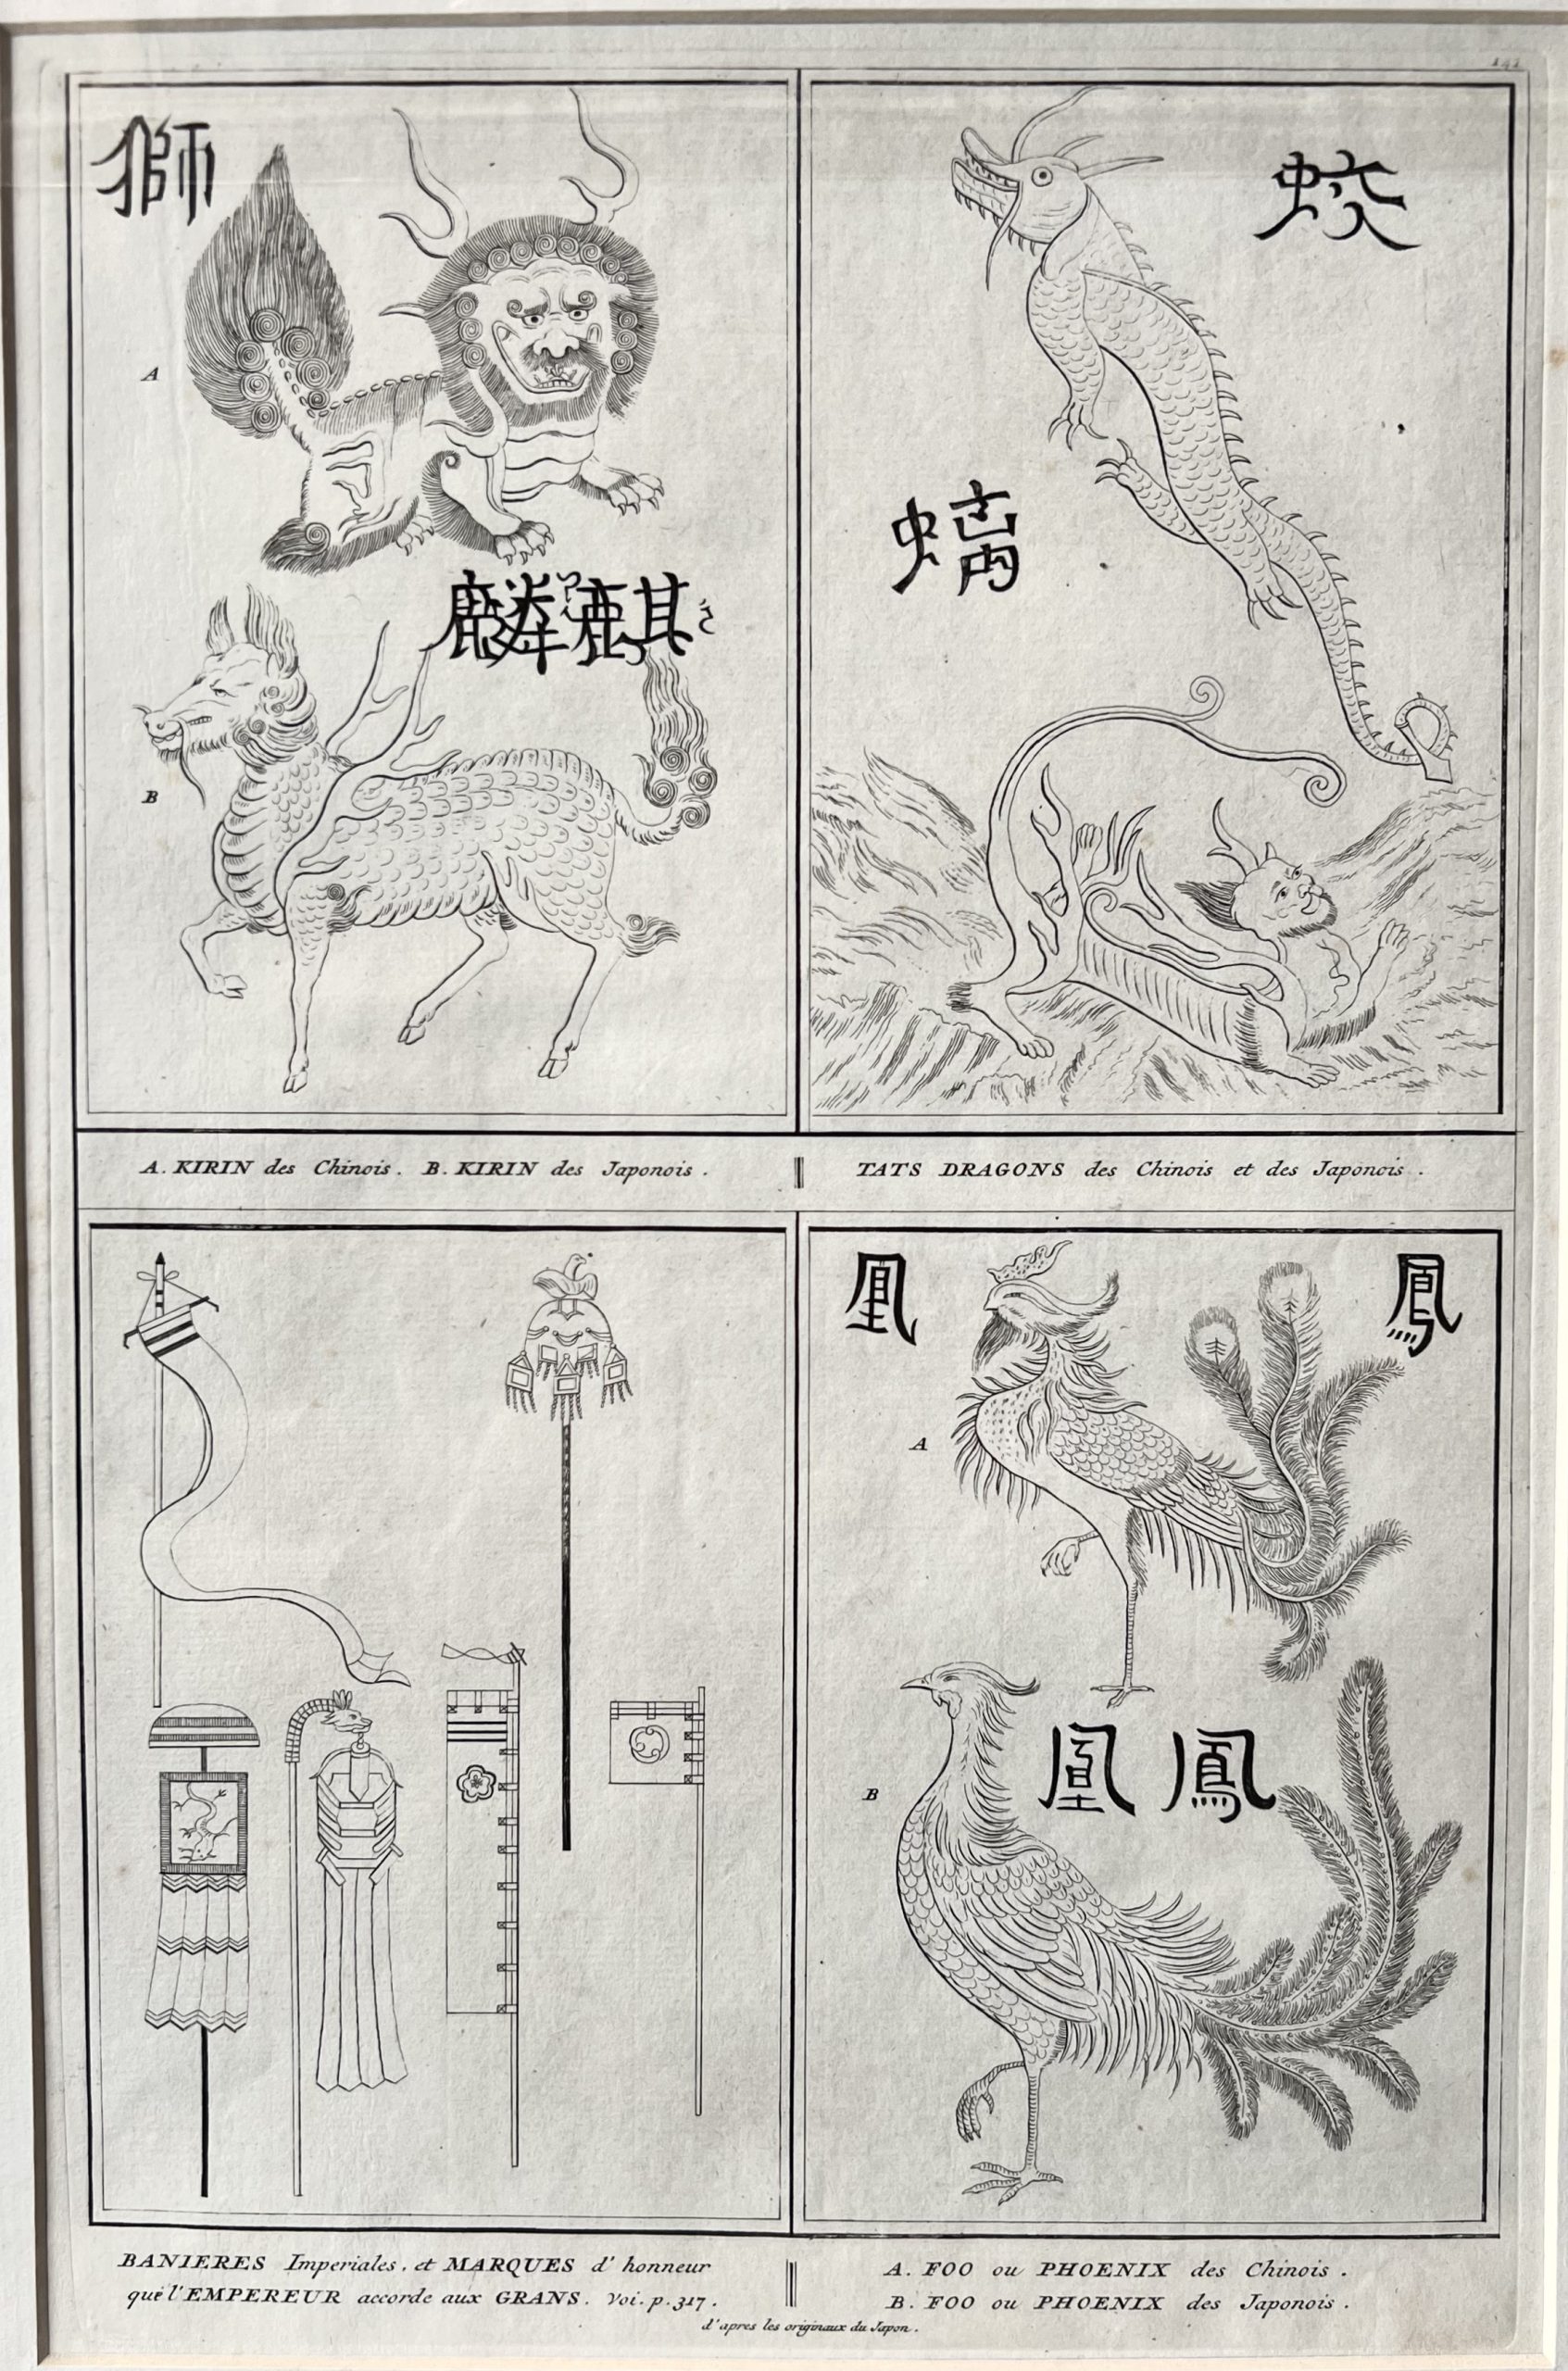 獅
A
麒麟
B
蛟
螭
A. KIRIN des Chinois. B. KIRIN des Japonois.
TATS DRAGONS des Chinois et des Japonois.
凰
鳳
A
鳳凰
B
BANIERES Imperiales, et MARQUES d'honneur
que l'EMPEREUR accorde aux GRANS. Voi. p. 317.
A. FOO ou PHOENIX des Chinois.
B. FOO ou PHOENIX des Japonois.
d'apres les originaux du Japon.